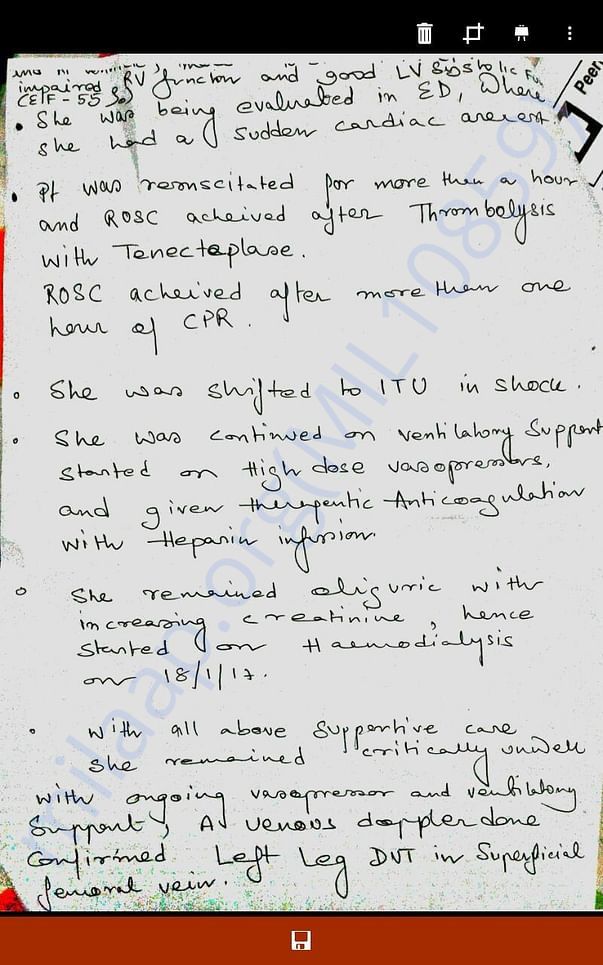 impaired RV function and good LV systolic Fn
(EF-55%)
Peer
• She was being evaluated in ED, where
she had a sudden cardiac arerest
• Pt was resonscitated for more than a hour
and ROSC acheived after Thrombolysis
with Tenecteplase.
ROSC acheived after more than one
hour of CPR.
• She was shifted to ITU in shock.
• She was continued on ventilatory Support
started on High dose vasopressors,
and given therepentic Anticoagulation
with Heparin infusion.
• She remained oliguric with
increasing creatinine, hence
started on Haemodialysis
on 18/1/17.
• with all above Supportive care
she remained critically unwell
with ongoing vasopressor and ventilatory
Support, A venous doppler done
Confirmed Left Leg DVT in Superficial
femoral vein.
milaap.org(MIL108597